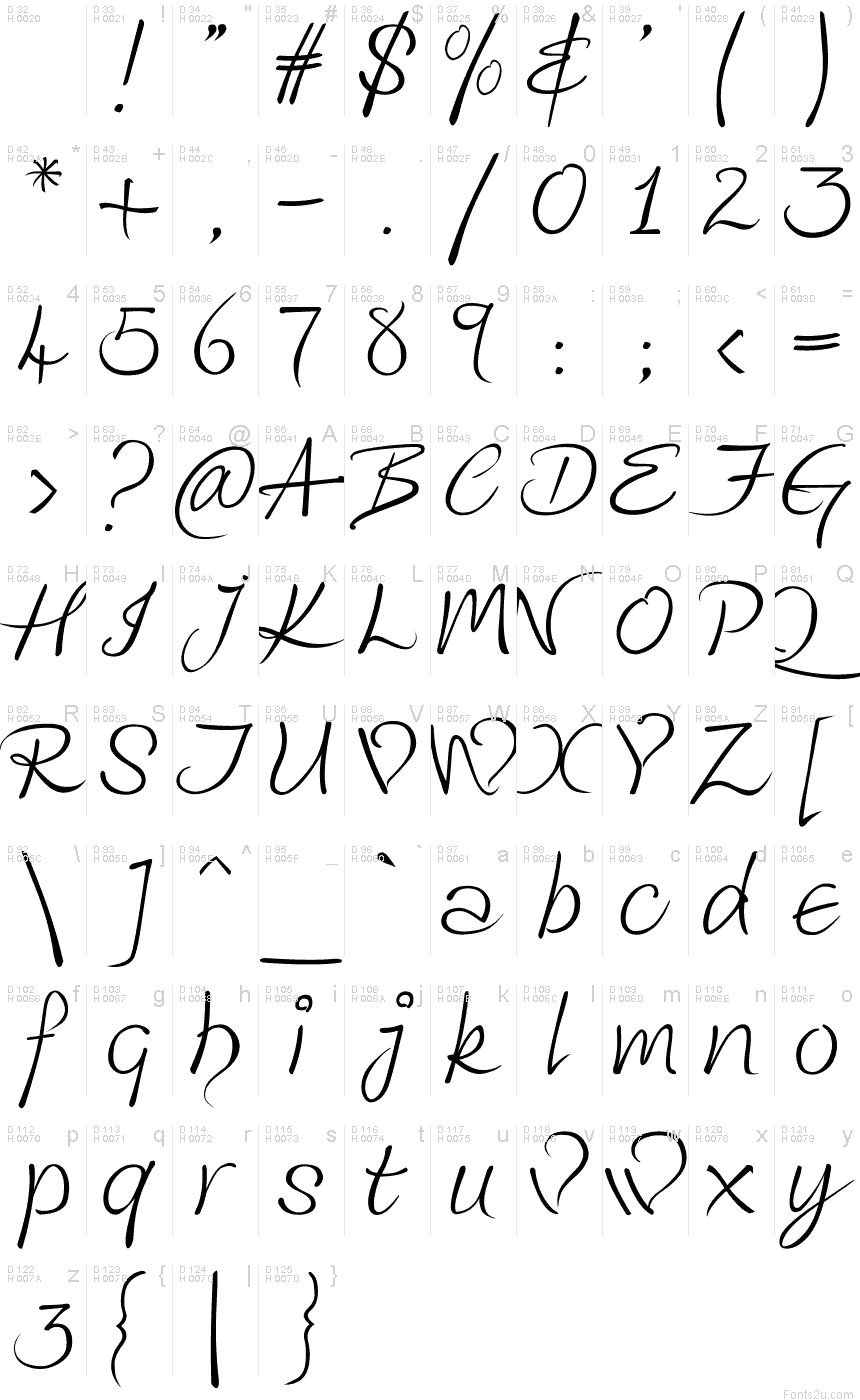 D 32 H 0020 D 33 H 0021 ! D 34 H 0022 " D 35 H 0023 # D 36 H 0024 $ D 37 H 0025 % D 38 H 0026 & D 39 H 0027 ' D 40 H 0028 ( D 41 H 0029 )
! " # $ % & ' ( )
D 42 H 002A * D 43 H 002B + D 44 H 002C , D 45 H 002D - D 46 H 002E . D 47 H 002F / D 48 H 0030 0 D 49 H 0031 1 D 50 H 0032 2 D 51 H 0033 3
* + , - . / 0 1 2 3
D 52 H 0034 4 D 53 H 0035 5 D 54 H 0036 6 D 55 H 0037 7 D 56 H 0038 8 D 57 H 0039 9 D 58 H 003A : D 59 H 003B ; D 60 H 003C < D 61 H 003D =
4 5 6 7 8 9 : ; < =
D 62 H 003E > D 63 H 003F ? D 64 H 0040 @ D 65 H 0041 A D 66 H 0042 B D 67 H 0043 C D 68 H 0044 D D 69 H 0045 E D 70 H 0046 F D 71 H 0047 G
> ? @ A B C D E F G
D 72 H 0048 H D 73 H 0049 I D 74 H 004A J D 75 H 004B K D 76 H 004C L D 77 H 004D M D 78 H 004E N D 79 H 004F O D 80 H 0050 P D 81 H 0051 Q
H I J K L M N O P Q
D 82 H 0052 R D 83 H 0053 S D 84 H 0054 T D 85 H 0055 U D 86 H 0056 V D 87 H 0057 W D 88 H 0058 X D 89 H 0059 Y D 90 H 005A Z D 91 H 005B [
R S T U V W X Y Z [
D 92 H 005C \ D 93 H 005D ] D 94 H 005E ^ D 95 H 005F _ D 96 H 0060 ` D 97 H 0061 a D 98 H 0062 b D 99 H 0063 c D 100 H 0064 d D 101 H 0065 e
\ ] ^ _ ` a b c d e
D 102 H 0066 f D 103 H 0067 g D 104 H 0068 h D 105 H 0069 i D 106 H 006A j D 107 H 006B k D 108 H 006C l D 109 H 006D m D 110 H 006E n D 111 H 006F o
f g h i j k l m n o
D 112 H 0070 p D 113 H 0071 q D 114 H 0072 r D 115 H 0073 s D 116 H 0074 t D 117 H 0075 u D 118 H 0076 v D 119 H 0077 w D 120 H 0078 x D 121 H 0079 y
p q r s t u v w x y
D 122 H 007A z D 123 H 007B { D 124 H 007C | D 125 H 007D }
z { | }
Fonts2u.com